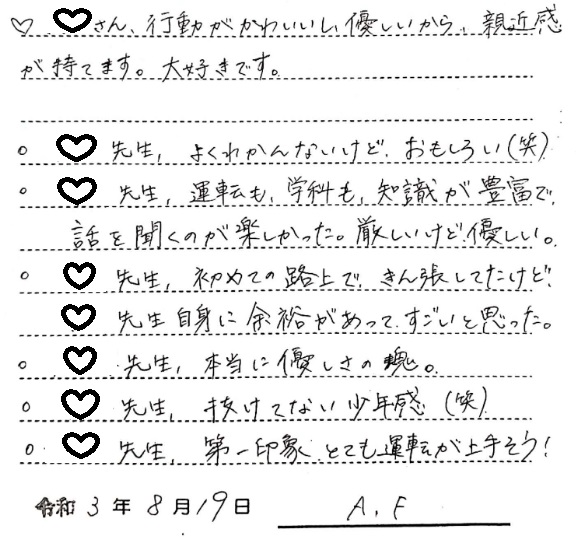 ♡ ♡さん、行動がかわいいし、優しいから、親近感
が持てます。大好きです。
○ ♡先生, よくわかんないけど、おもしろい(笑)
○ ♡先生, 運転も、学科も、知識が豊富で、
話を聞くのが楽しかった。厳しいけど優しい。
○ ♡先生, 初めての路上で、きん張してたけど、
♡先生自身に余裕があって、すごいと思った。
○ ♡先生, 本当に優しさの塊。
○ ♡先生, 抜けてない少年感(笑)
○ ♡先生, 第一印象、とても運転が上手そう!
令和 3 年 8 月 19 日 A. F